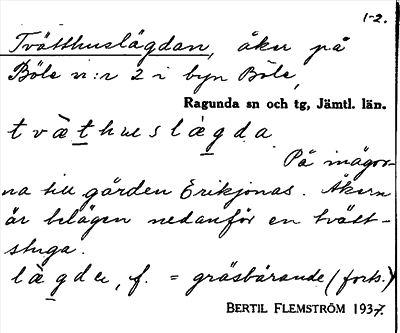 1-2.
Tvätthuslägdan, åker på
Böle n:r 2 i byn Böle,
Ragunda sn och tg, Jämtl. län.
tvæ̀t̲huslæ̀g̲da
På inägor-
na till gården Erikjonas. Åkern
är belägen nedanför en tvätt-
stuga.
læ̀g̲de, f. = gräsbärande (forts.)
BERTIL FLEMSTRÖM 1937.